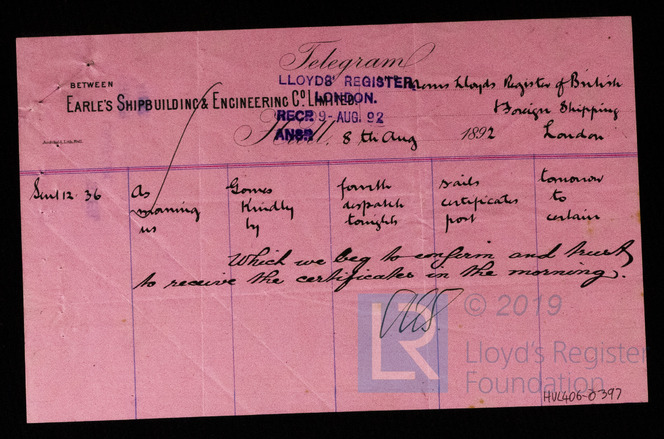 Telegram
BETWEEN
EARLE'S SHIPBUILDING & ENGINEERING CO. LIMITED,
Lloyds Register of British
& Foreign Shipping
London
LLOYDS' REGISTER,
LONDON.
RECD 9-AUG. 92
ANSD
Hull, 8th Aug 1892
Sent 12.36 As Gomes fourth sails tomorrow
morning Kindly dispatch certificates to
us by tonights post certain
Which we beg to confirm and trust
to receive the certificates in the morning.
LR
© 2019
Lloyd's Register
Foundation
HUL406-0397